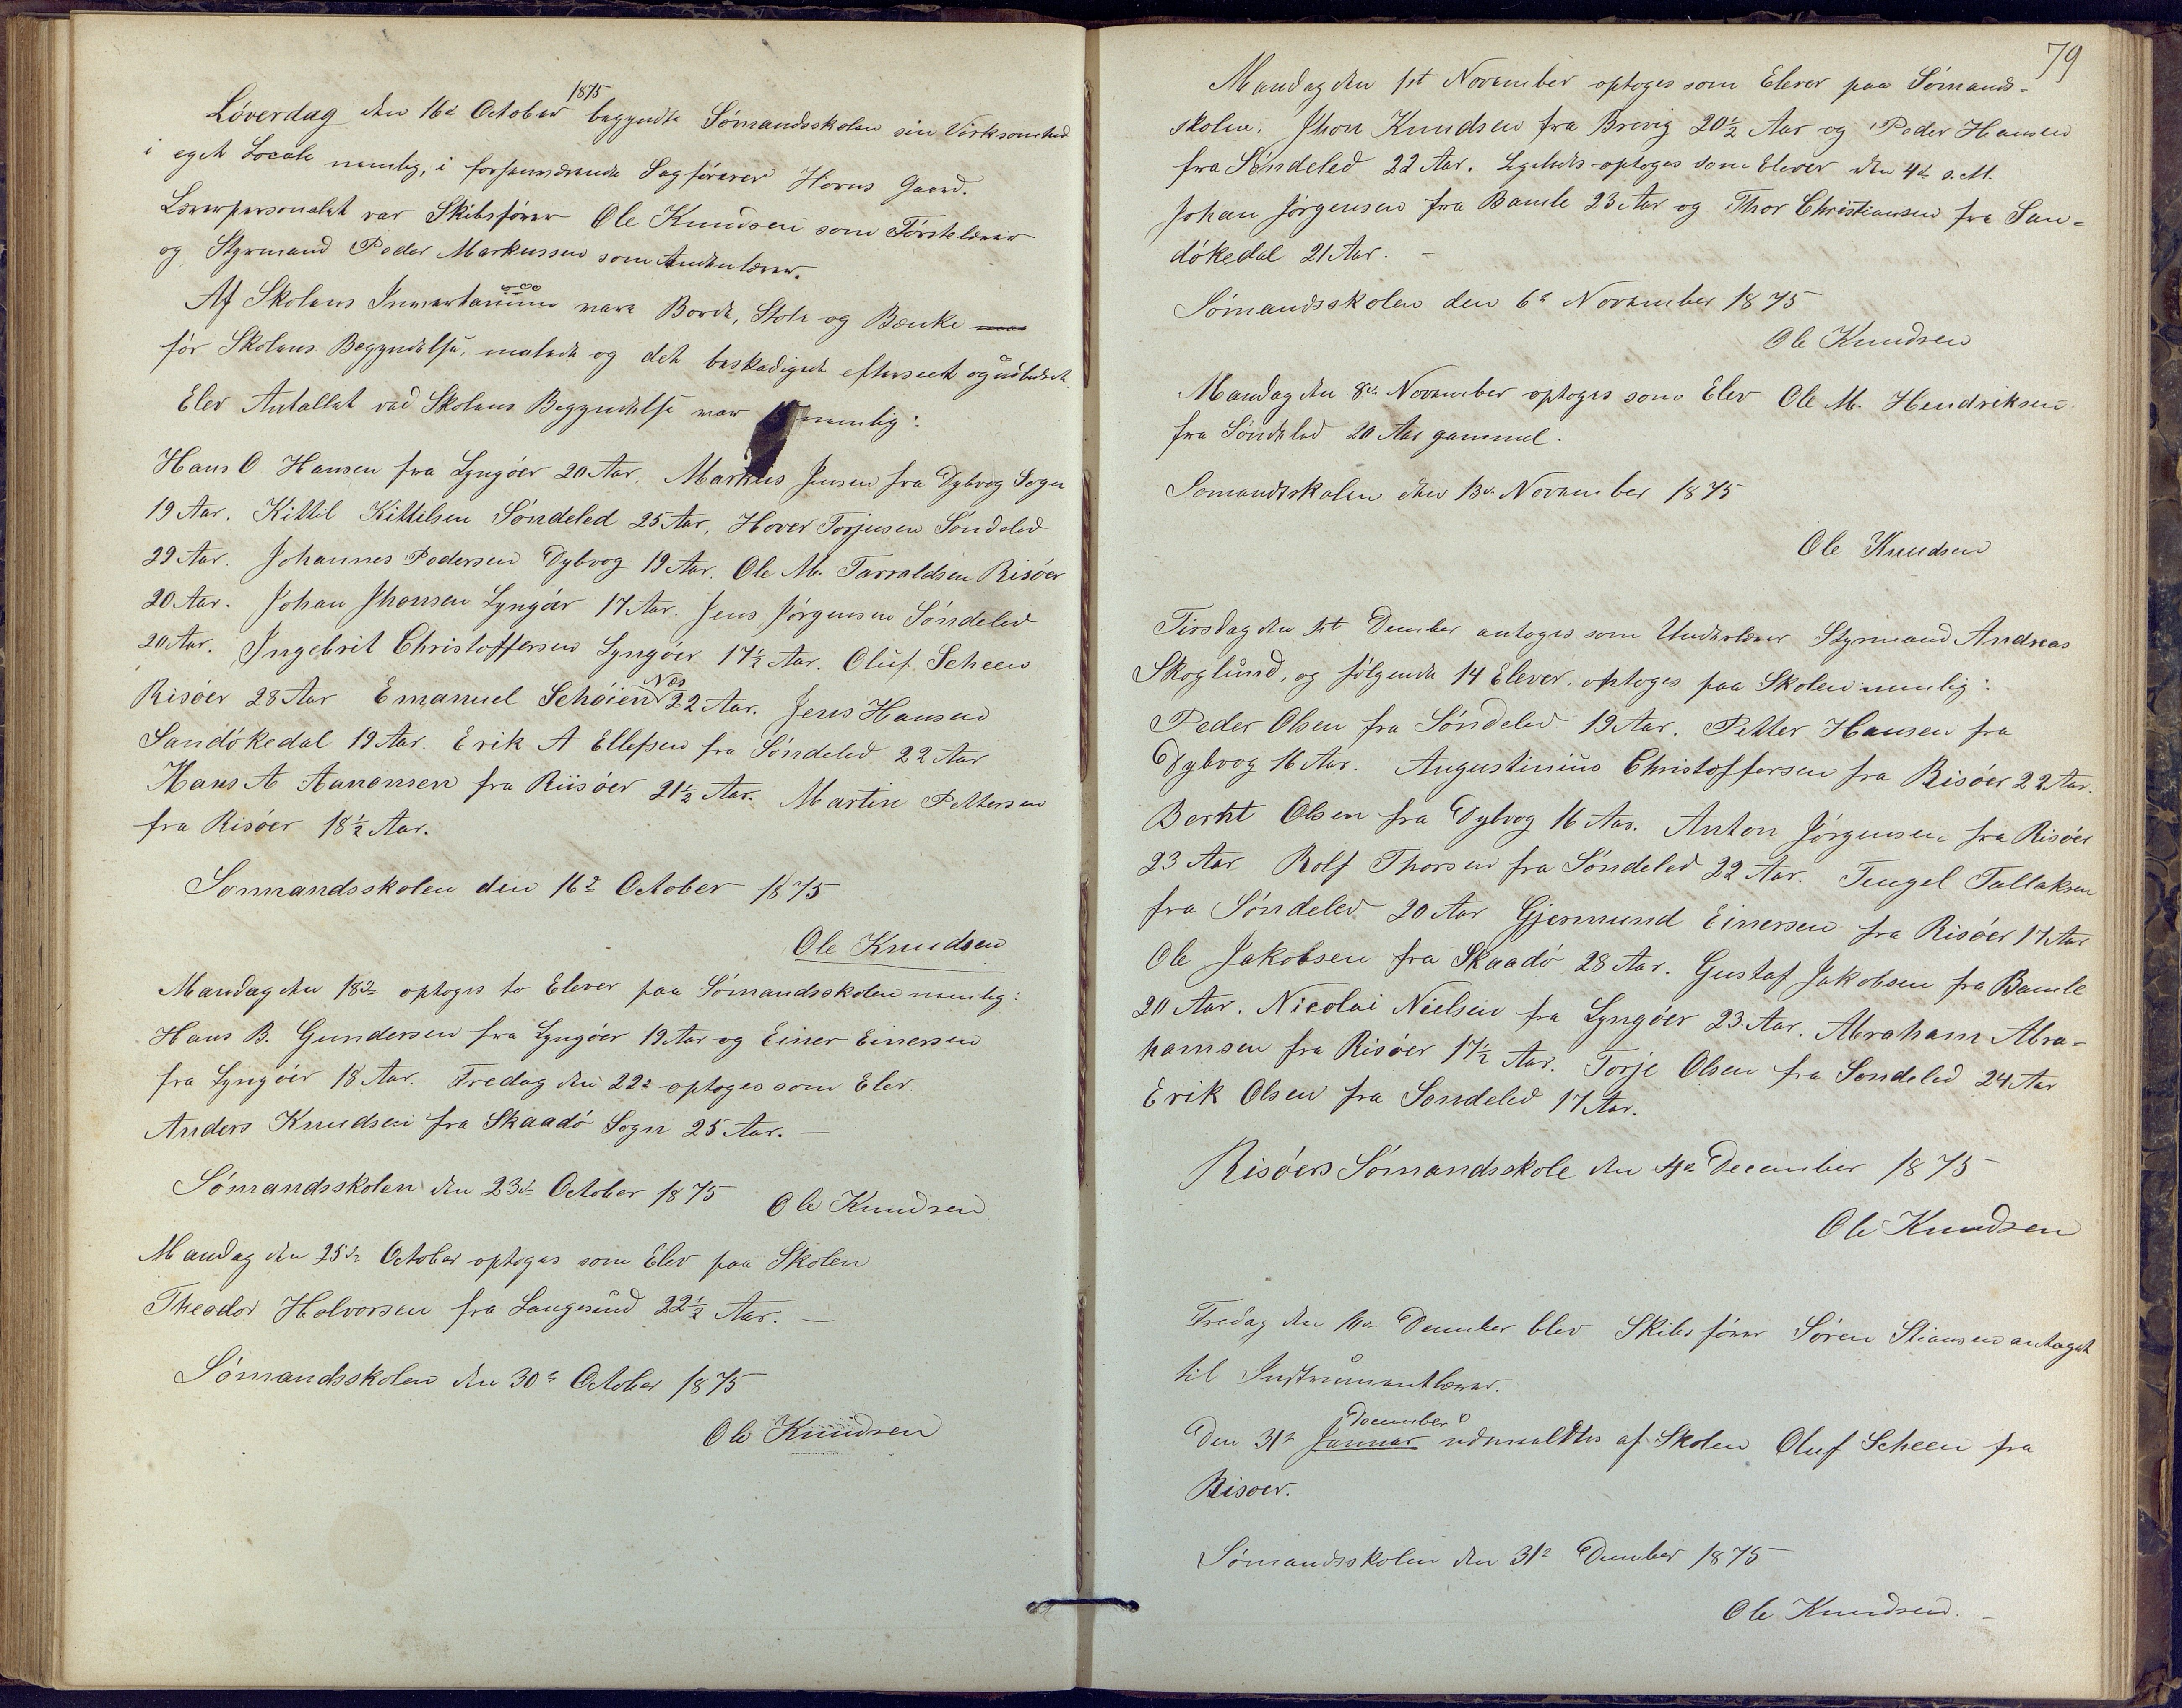 Løverdag den 16de October 1875 begyndte Sømandsskolen sin Virksomhed
i eget Locale nemlig, i forhenværende Sagfører Horns Gaard.
Lærerpersonalet var Skibsfører Ole Knudsen som Førstelærer
og Styrmand Peder Markussen som Andenlærer.
Af Skolens Inventarium vare Borde, Stole og Bænke
før Skolens Begyndelse, malede og det beskadigede efterseet og udbedret.
Elev Antallet ved Skolens Begyndelse var nemlig:
Hans O Hansen fra Lyngøer 20 Aar. Markus Jensen fra Dybvog Sogn
19 Aar. Kittil Kittilsen Søndeled 25 Aar, Hover Torjusen Søndeled
29 Aar. Johannes Pedersen Dybvog 19 Aar. Ole M. Tarraldsen Risøer
20 Aar. Johan Jhonsen Lyngøer 17 Aar. Jens Jørgensen Søndeled
20 Aar. Ingebrit Christoffersen Lyngøer 17½ Aar. Oluf Scheen
Risøer 28 Aar Emanuel Schøien Næs 22 Aar. Jens Hansen
Sandøkedal 19 Aar. Erik A Ellefsen fra Søndeled 22 Aar
Hans A Aanonsen fra Riisøer 21½ Aar. Martin Pettersen
fra Risøer 18½ Aar.
Sømandsskolen den 16de October 1875
Ole Knudsen
Mandag den 18de optoges to Elever paa Sømandsskolen nemlig:
Hans B. Gundersen fra Lyngøer 19 Aar og Einer Einersen
fra Lyngøer 18 Aar. Fredag den 22de optoges som Elev
Anders Knudsen fra Skaadø Sogn 25 Aar. —
Sømandsskolen den 23de October 1875 Ole Knudsen.
Mandag den 25de October optoges som Elev paa Skolen
Theodor Halvorsen fra Langesund 22½ Aar. —
Sømandsskolen den 30te October 1875
Ole Knudsen
79
Mandag den 1st November optoges som Elever paa Sømands-
skolen. Jhon Knudsen fra Brevig 20½ Aar og Peder Hansen
fra Søndeled 22 Aar. Ligeledes optoges som Elever den 4de s. M.
Johan Jørgensen fra Bamle 23 Aar og Thor Christiansen fra San=
døkedal 21 Aar. —
Sømandsskolen den 6te November 1875
Ole Knudsen
Mandag den 8de November optoges som Elev Ole M. Hendriksen
fra Søndeled 20 Aar gammel.
Sømandsskolen den 13de November 1875
Ole Knudsen
Tirsdag den 1st Dember antoges som Underlærer Styrmand Andreas
Skoglund, og følgende 14 Elever optoges paa Skolen nemlig:
Peder Olsen fra Søndeled 19 Aar. Petter Hansen fra
Dybvog 16 Aar. Augustinius Christoffersen fra Risøer 22 Aar.
Bernt Olsen fra Dybvog 16 Aar. Anton Jørgensen fra Risøer
23 Aar Rolf Thorsen fra Søndeled 22 Aar. Tengel Tallaksen
fra Søndeled 20 Aar Gjermund Einersen fra Risøer 17 Aar
Ole Jakobsen fra Skaadø 28 Aar. Gustaf Jakobsen fra Bamle
20 Aar. Nicolai Nielsen fra Lyngøer 23 Aar. Abraham Abra-
hamsen fra Risøer 17½ Aar. Torje Olsen fra Søndeled 24 Aar
Erik Olsen fra Søndeled 17 Aar.
Risøers Sømandsskole den 4de December 1875
Ole Knudsen
Fredag den 10de Dember blev Skibsfører Søren Stiansen antaget
til Instrumentlærer.
Den 31te Januar December udmeldtes af Skolen Oluf Scheen fra
Risøer.
Sømandsskolen den 31te Dember 1875
Ole Knudsen. —